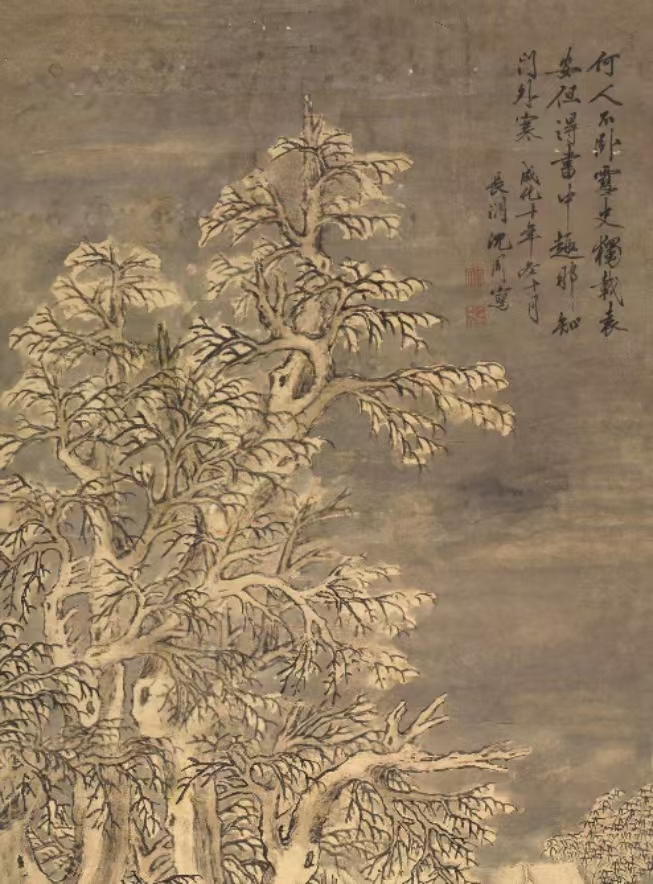 何人不卧雪史獨載袁
安但得書中趣那知
門外寒 成化十年冬十月
長洲沈周寫